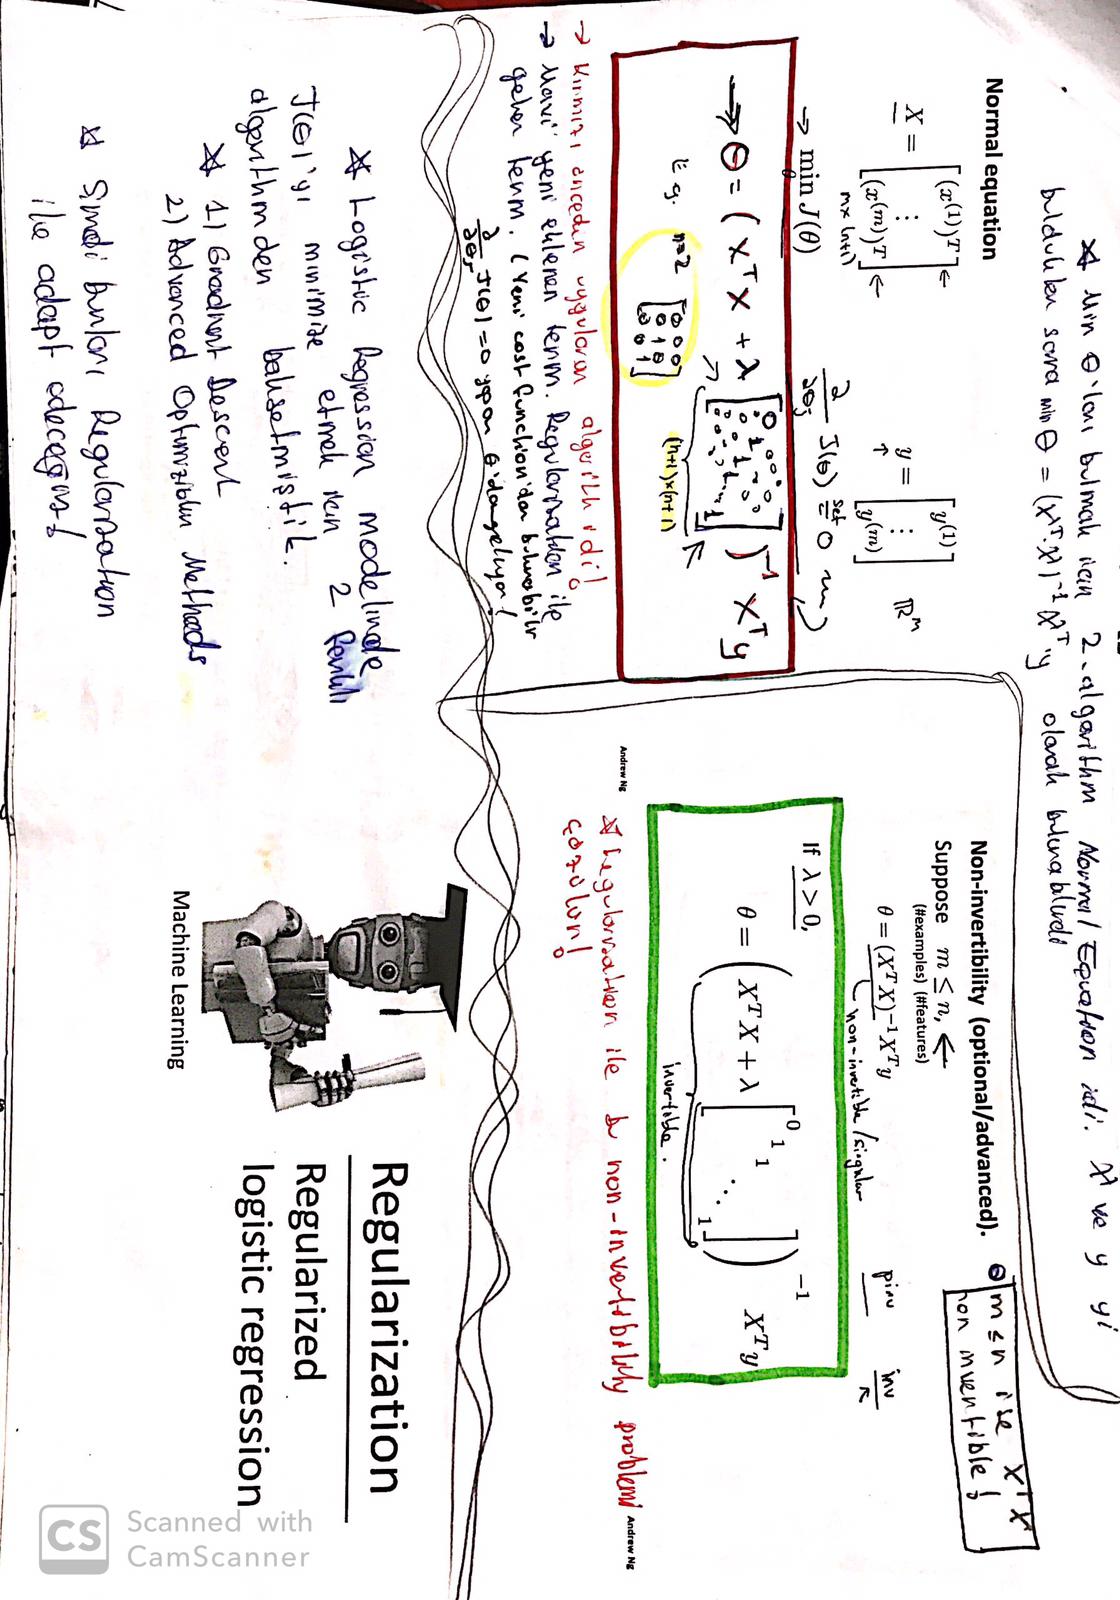 Min θ'ları bulmak için 2. algorithm Normal Equation idi. X ve y yi
bulduktan sonra min θ = (Xᵀ.X)⁻¹ Xᵀ.y olarak bulunabilirdi
Normal equation
X = [(x⁽¹⁾)ᵀ ⋮ (x⁽ᵐ⁾)ᵀ] ← ←
m x (n+1)
y = [y⁽¹⁾ ⋮ y⁽ᵐ⁾] ℝᵐ
→ min J(θ)
θ
∂/∂θj J(θ) set = 0
→ θ = (XᵀX + λ [0 0 0 0 1 1 1])⁻¹ Xᵀy
(n+1)x(n+1)
E.g. n=2 [0 0 0
0 1 0
0 0 1]
→ Kırmızı önceden uygulanan algorith idi!
→ Mavi yeni eklenen term. Regularization ile
gelen term. (Yeni cost function'dan bulunabilir
∂/∂θj J(θ) = 0 yapan θ'dan geliyor!
Non-invertibility (optional/advanced).
m ≤ n ise XᵀX
non invertible!
Suppose m ≤ n, ←
(#examples) (#features)
θ = (XᵀX)⁻¹Xᵀy
non-invertible/singular
pinv inv
If λ > 0,
θ = (XᵀX + λ [0 1 1 ⋱ 1])⁻¹ Xᵀy
invertible.
Andrew Ng
Andrew Ng
Regularization ile bu non-invertibility problemi
çözülür!
Logistic Regression modelinde
J(θ)'yı minimize etmek için 2 farklı
algorithmden bahsetmiştik.
1) Gradient Descent
2) Advanced Optimization Methods
Şimdi bunları Regularization
ile adapt edeceğiz!
Machine Learning
Regularization
Regularized
logistic regression
Scanned with
CamScanner
CS